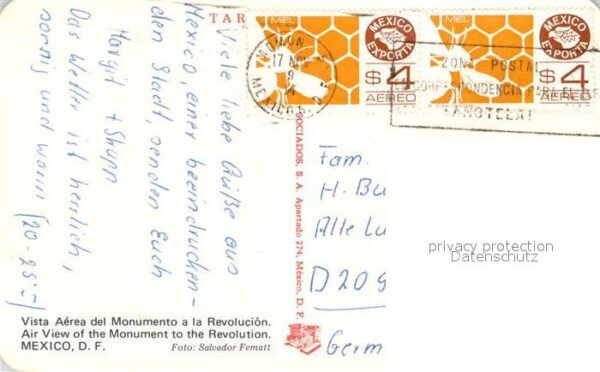 TAR
MIEL
MEXICO
EXPORTA
$4
AEREO
MIEL
MEXICO
EXPORTA
$4
AEREO
17 NOV
MEXICO
ZONA POSTAL
CORRESPONDENCIA PARA EL D.F.
ANOTELA!
Viele liebe Grüße aus
Mexico einer beeindrucken-
den Stadt, senden Euch
Margit +
Das Wetter ist herrlich,
sonnig und warm (20-25°C)
SOCIADOS, S. A. Apartado 274, México, D. F.
Fam.
H. Bu
Alle Lu
D209
Germ
privacy protection
Datenschutz
Vista Aérea del Monumento a la Revolución.
Air View of the Monument to the Revolution.
MEXICO, D. F. Foto: Salvador Fematt